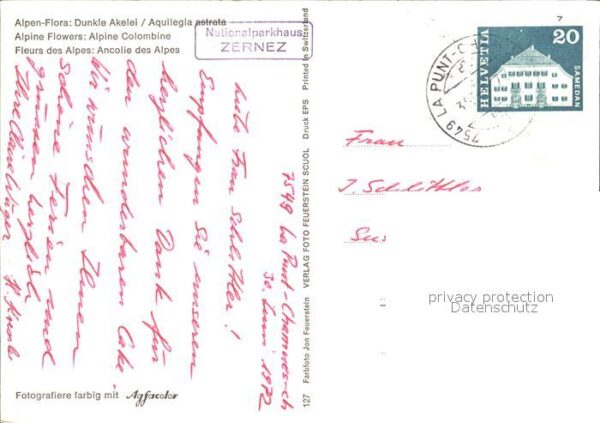 Alpen-Flora: Dunkle Akelei / Aquilegia astrata
Alpine Flowers: Alpine Colombine
Fleurs des Alpes: Ancolie des Alpes
Nationalparkhaus
ZERNEZ
7549 La Punt-Chamues-ch
30. Juni 1972
Liebe Frau Schlittler!
Empfangen Sie unseren
herzlichen Dank für
den wunderbaren Cake.
Wir wünschen Ihnen
schöne Ferien und
grüssen herzlich
Ihre
Fotografiere farbig mit Agfacolor
127 Farbfoto Jon Feuerstein VERLAG FOTO FEUERSTEIN SCUOL Druck EPS Printed in Switzerland
7
7549 LA PUNT-CH
HELVETIA
20
SAMEDAN
Frau
J. Schlittler
Sus
privacy protection
Datenschutz